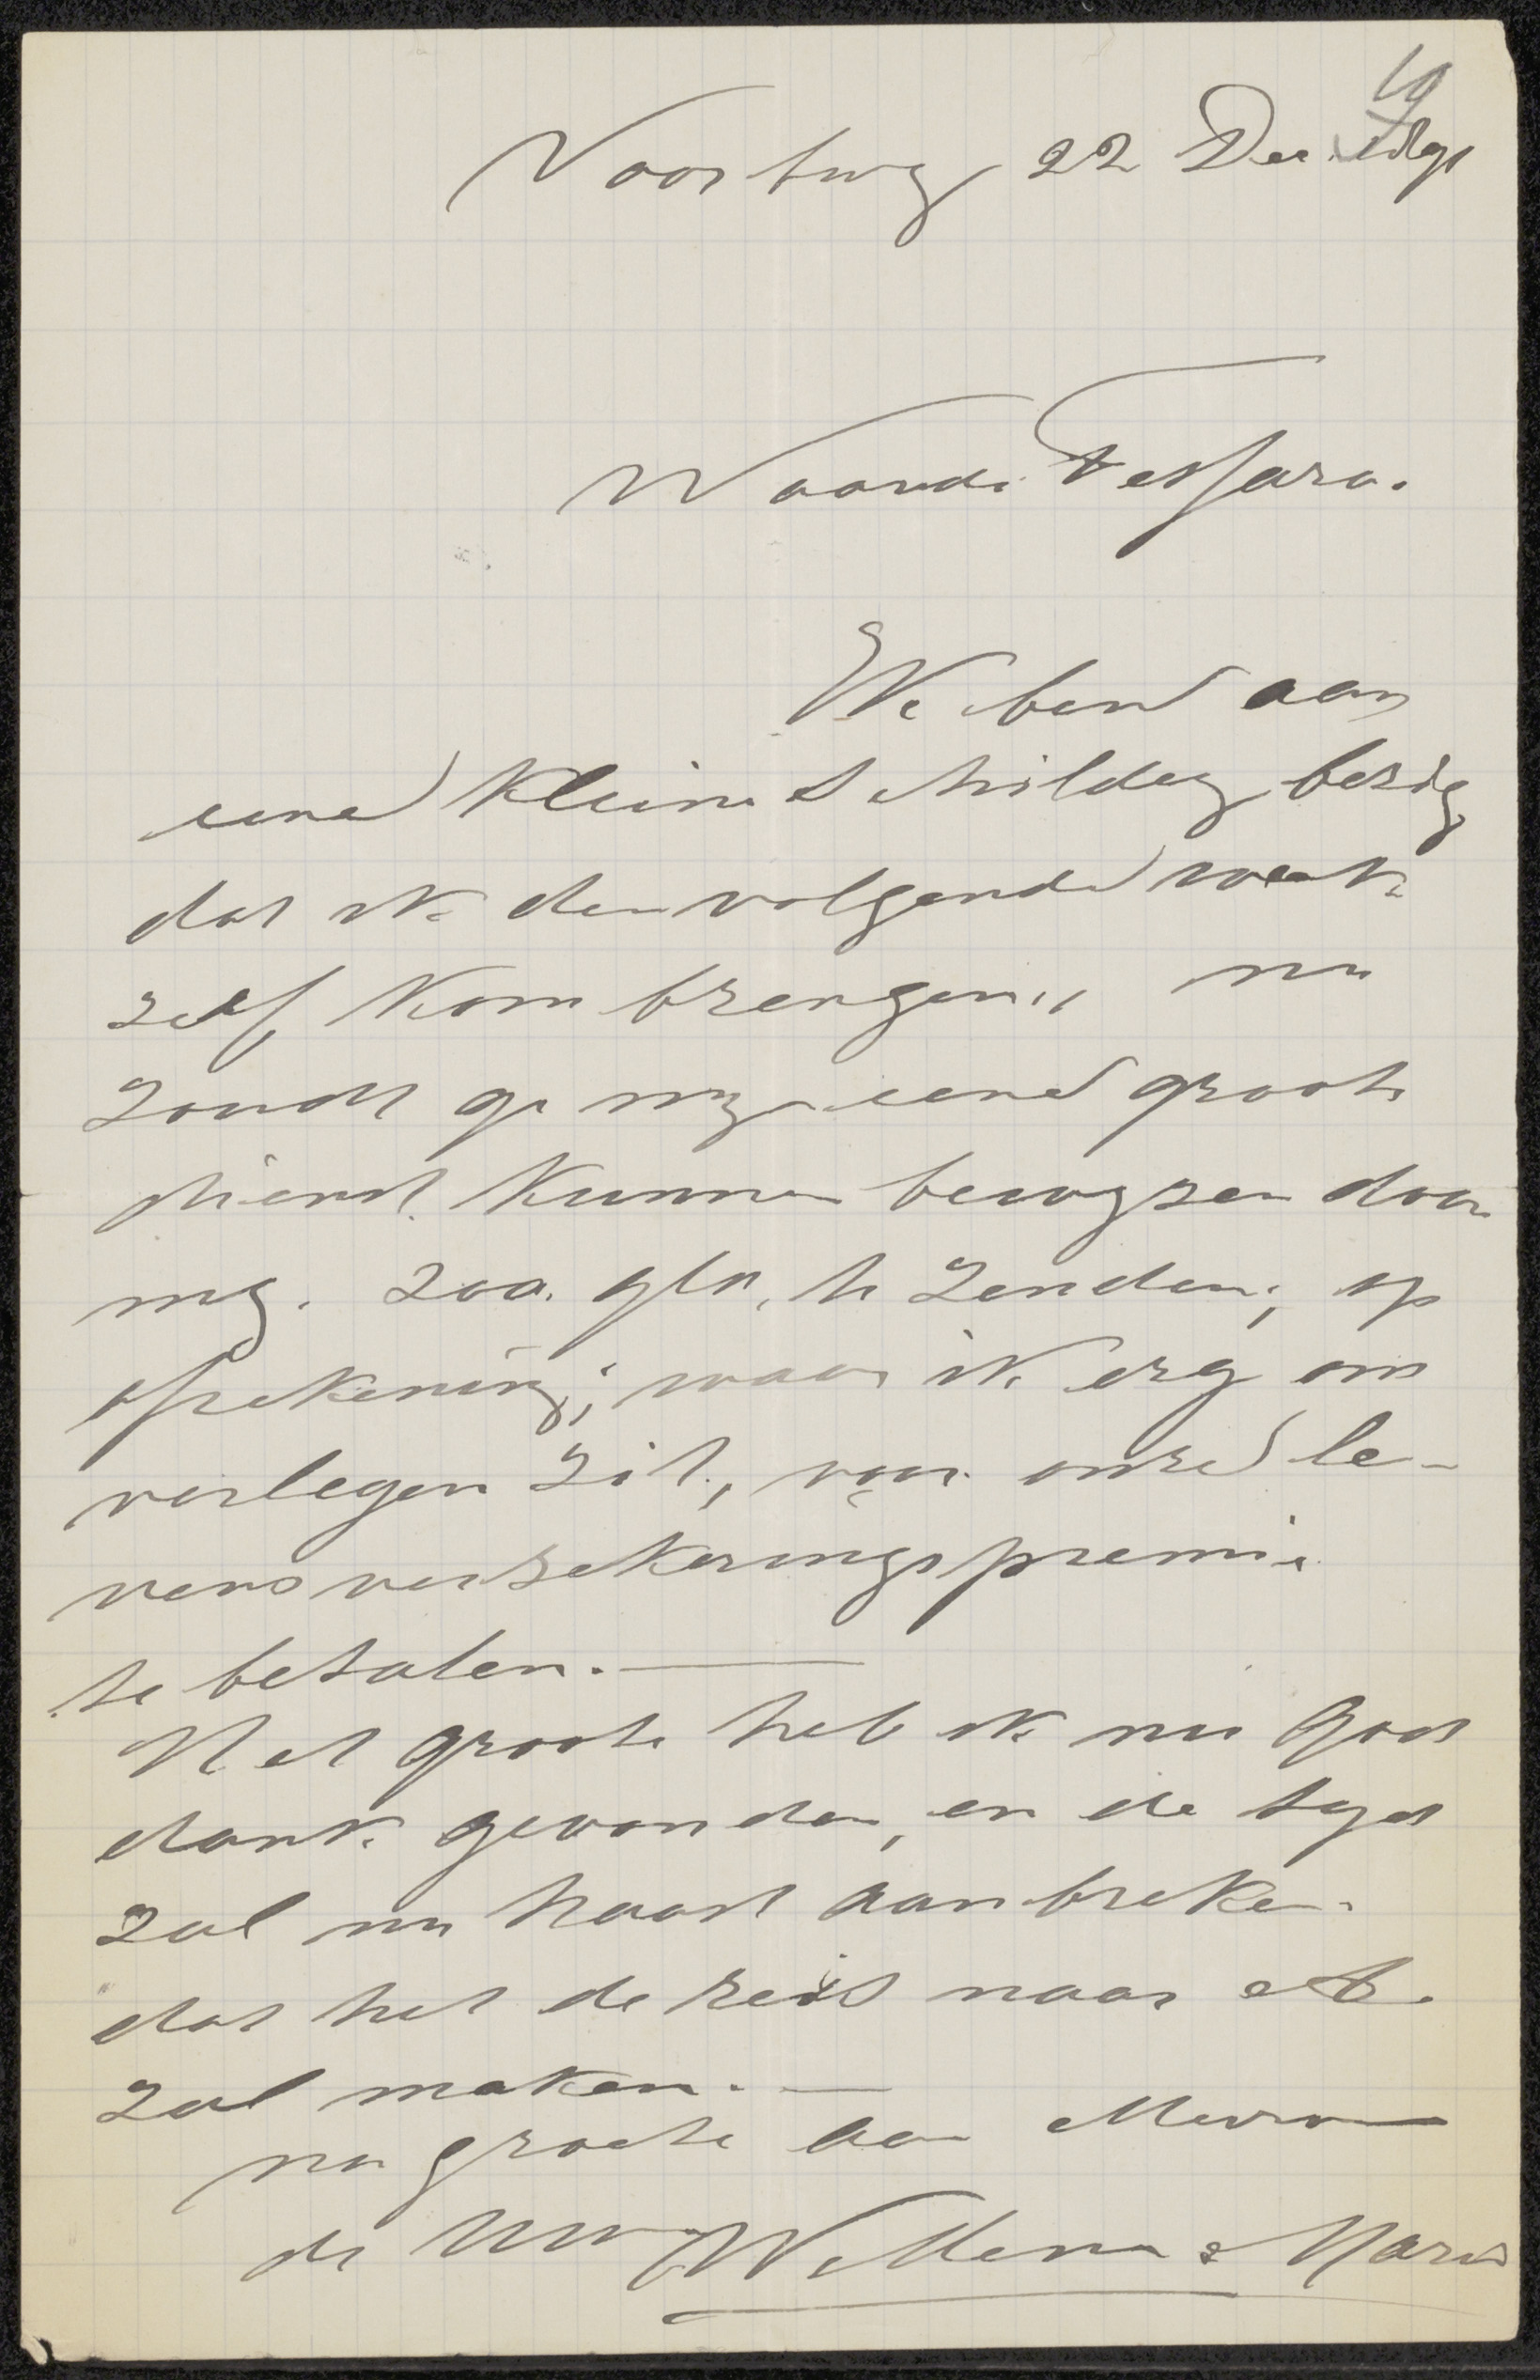 Voorburg 22 Dec.
19
Waarde Tessaro.
Ik ben aan
eene kleine schildery bezig
dat ik de volgende week
zelf kom brengen,, nu
zoudt ge my eene groote
dienst kunnen bewyzen door
my. 200. gld. te zenden; op
afrekening; waar ik erg om
verlegen zit, voor onze le-
vens verzekeringspremie
te betalen.—
Het groote heb ik nu God
dank gevonden, en de tyd
zal nu haast aanbreken
dat het de reis naar A.
zal maken.—
na groete aan Mevrouw
de Uwe Willem Maris